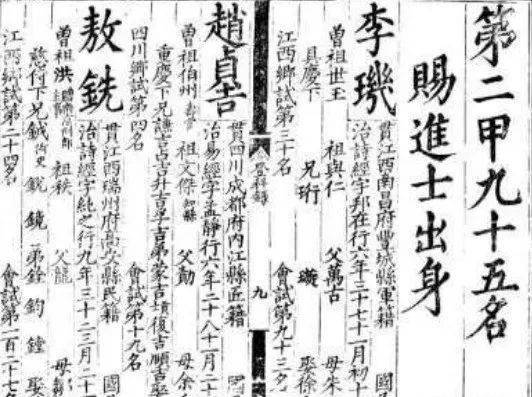 第二甲九十五名
賜進士出身
李璣
貫江西南昌府豐城縣軍籍
治詩經字邦在行六年三十七十一月初十
曾祖世玉 祖與仁 父萬古 母朱
具慶下 兄珩 璇 娶徐
江西鄉試第三十名 會試第九十三名
登科錄 九
趙貞吉
貫四川成都府內江縣匠籍
治易經字孟靜行六年二十八十一月二十
曾祖伯州 祖文傑知縣 父勳 母余
重慶下
四川鄉試第四名 會試第十九名
敖銑
貫江西瑞州府高安縣民籍
治詩經字純之行九年三十二三月二十
曾祖洪 祖秩 父龍 母
慈侍下 兄鉞 銳 鏡 弟銓 鈞 鏜 娶
江西鄉試第二十四名 會試第一百二十七名